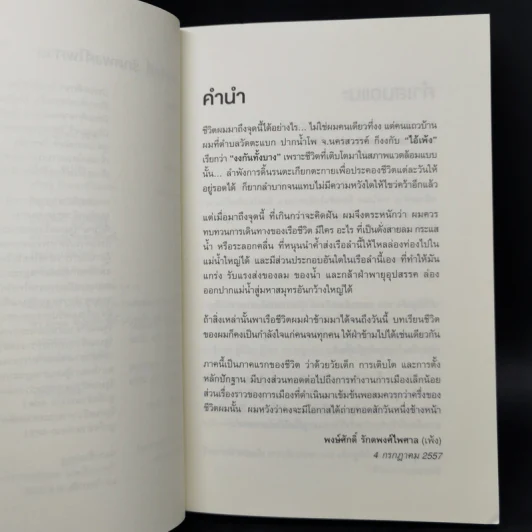 คำนำ
ชีวิตผมมาถึงจุดนี้ได้อย่างไร... ไม่ใช่ผมคนเดียวที่งง แต่คนแถวบ้าน
ผมที่ตำบลวัดตะแบก ปากน้ำโพ จ.นครสวรรค์ ก็งงกับ "ไอ้เพ้ง"
เรียกว่า "งงกันทั้งบาง" เพราะชีวิตที่เติบโตมาในสภาพแวดล้อมแบบ
นั้น... ลำพังการดิ้นรนตะเกียกตะกายเพื่อประคองชีวิตแต่ละวันให้
อยู่รอดได้ ก็ยากลำบากจนแทบไม่มีความหวังใดให้ไขว่คว้าอีกแล้ว
แต่เมื่อมาถึงจุดนี้ ที่เกินกว่าจะคิดฝัน ผมจึงตระหนักว่า ผมควร
ทบทวนการเดินทางของเรือชีวิต มีใคร อะไร ที่เป็นดั่งสายลม กระแส
น้ำ หรือระลอกคลื่น ที่หนุนนำค้ำส่งเรือลำนี้ให้ไหลล่องท่องไปใน
แม่น้ำใหญ่ได้ และมีส่วนประกอบอันใดในเรือลำนี้เอง ที่ทำให้มัน
แกร่ง รับแรงส่งของลม ของน้ำ และกล้าฝ่าพายุอุปสรรค ล่อง
ออกปากแม่น้ำสู่มหาสมุทรอันกว้างใหญ่ได้
ถ้าสิ่งเหล่านั้นพาเรือชีวิตผมฝ่าข้ามมาได้จนถึงวันนี้ บทเรียนชีวิต
ของผมก็คงเป็นกำลังใจแก่คนจนทุกคน ให้ฝ่าข้ามไปได้เช่นเดียวกัน
ภาคนี้เป็นภาคแรกของชีวิต ว่าด้วยวัยเด็ก การเติบโต และการตั้ง
หลักปักฐาน มีบางส่วนทอดต่อไปถึงการทำงานการเมืองเล็กน้อย
ส่วนเรื่องราวของการเมืองที่ดำเนินมาเข้มข้นพอสมควรกว่าครึ่งของ
ชีวิตผมนั้น ผมหวังว่าคงจะมีโอกาสได้ถ่ายทอดสักวันหนึ่งข้างหน้า
พงษ์ศักดิ์ รักตพงศ์ไพศาล (เพ้ง)
4 กรกฎาคม 2557